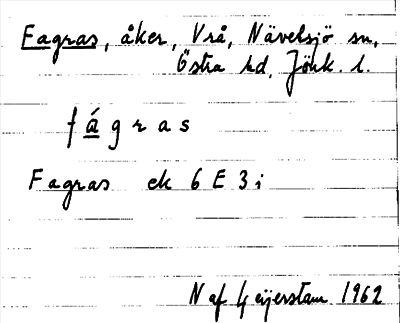 Fagras, åker, Vrå, Nävelsjö sn,
Östra hd, Jönk. l.
fágras
Fagras ek 6 E 3 i
N af Geijerstam 1962